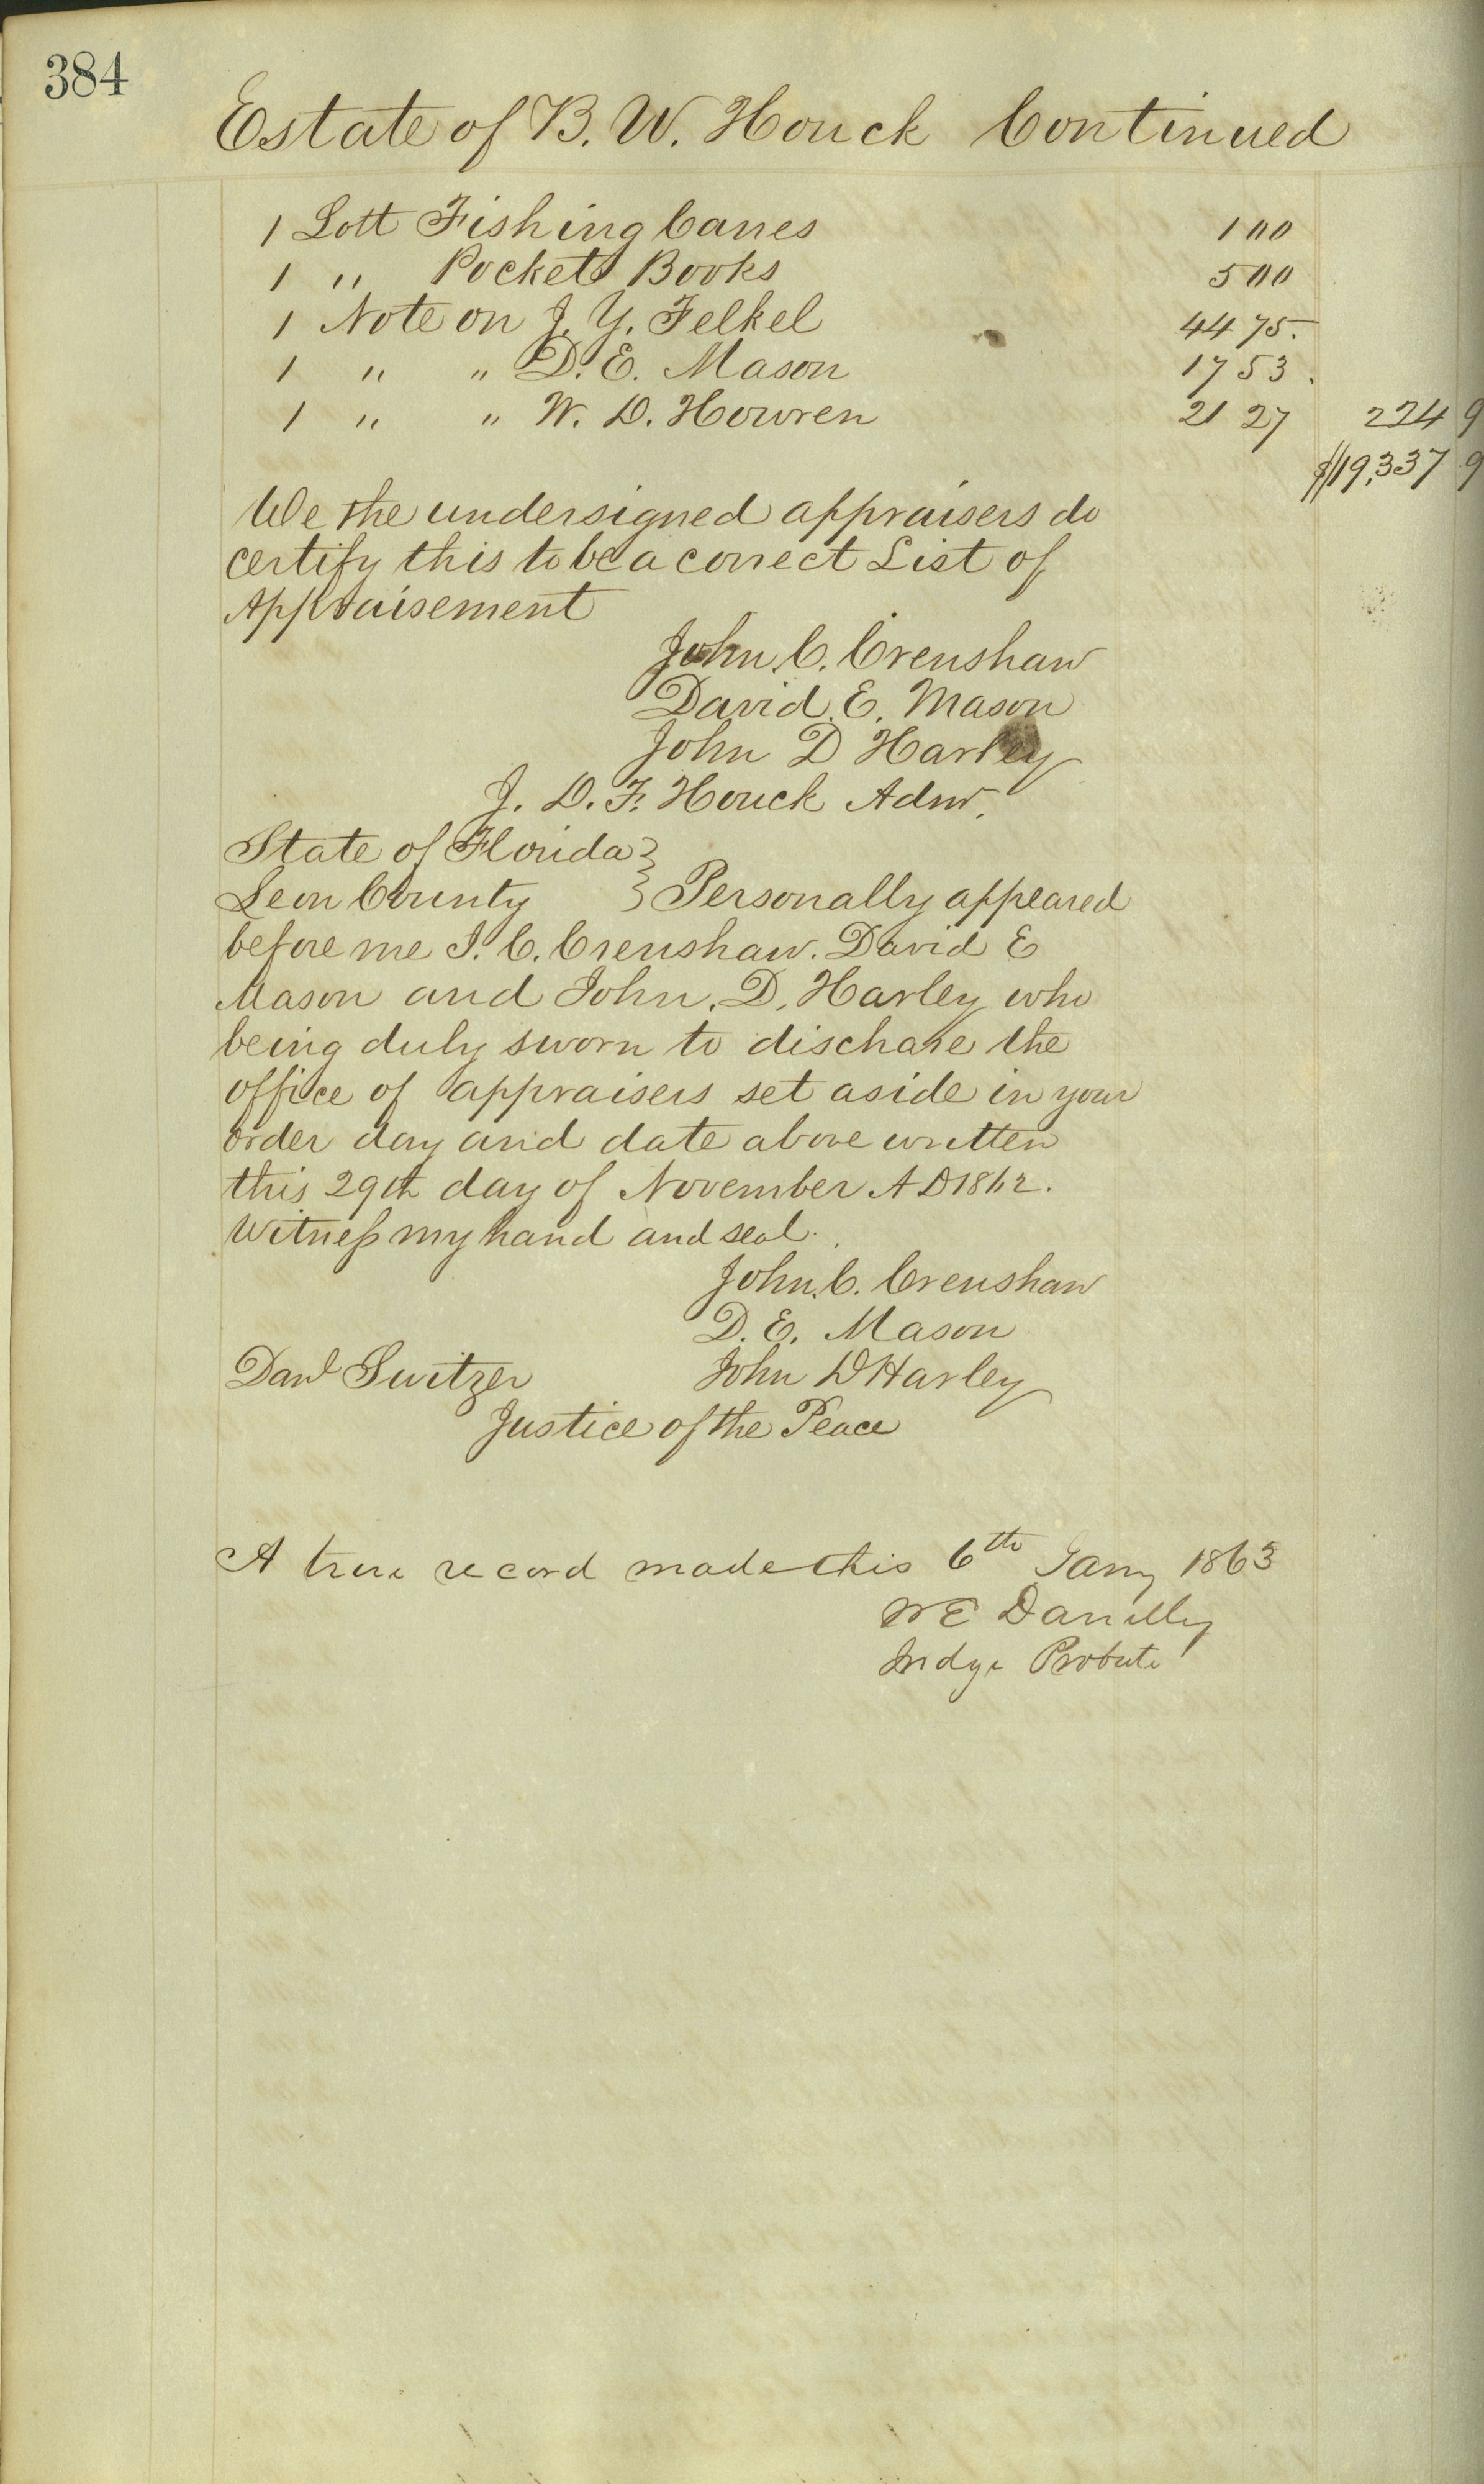 384
Estate of B. W. Houck Continued
1 Lott Fishing Canes 1 00
1 " Pocket Books 5 00
1 Note on J. Y. Felkel 44 75.
1 " " D. E. Mason 17 53.
1 " " W. D. Howren 21 27 224 9
$19,337 9
We the undersigned appraisers do
certify this to be a correct List of
Appraisement
John C. Crenshaw
David E. Mason
John D Harley
J. D. F. Houck Admr.
State of Florida }
Leon County } Personally appeared
before me J. C. Crenshaw. David E
Mason and John. D. Harley who
being duly sworn to dischare the
office of appraisers set aside in your
order day and date above written
this 29th day of November A D 1862.
Witness my hand and seal.
John. C. Crenshaw
D. E. Mason
Danl Switzer John D Harley
Justice of the Peace
A true record made this 6th Jany 1863
W E Danelly
Judge Probate